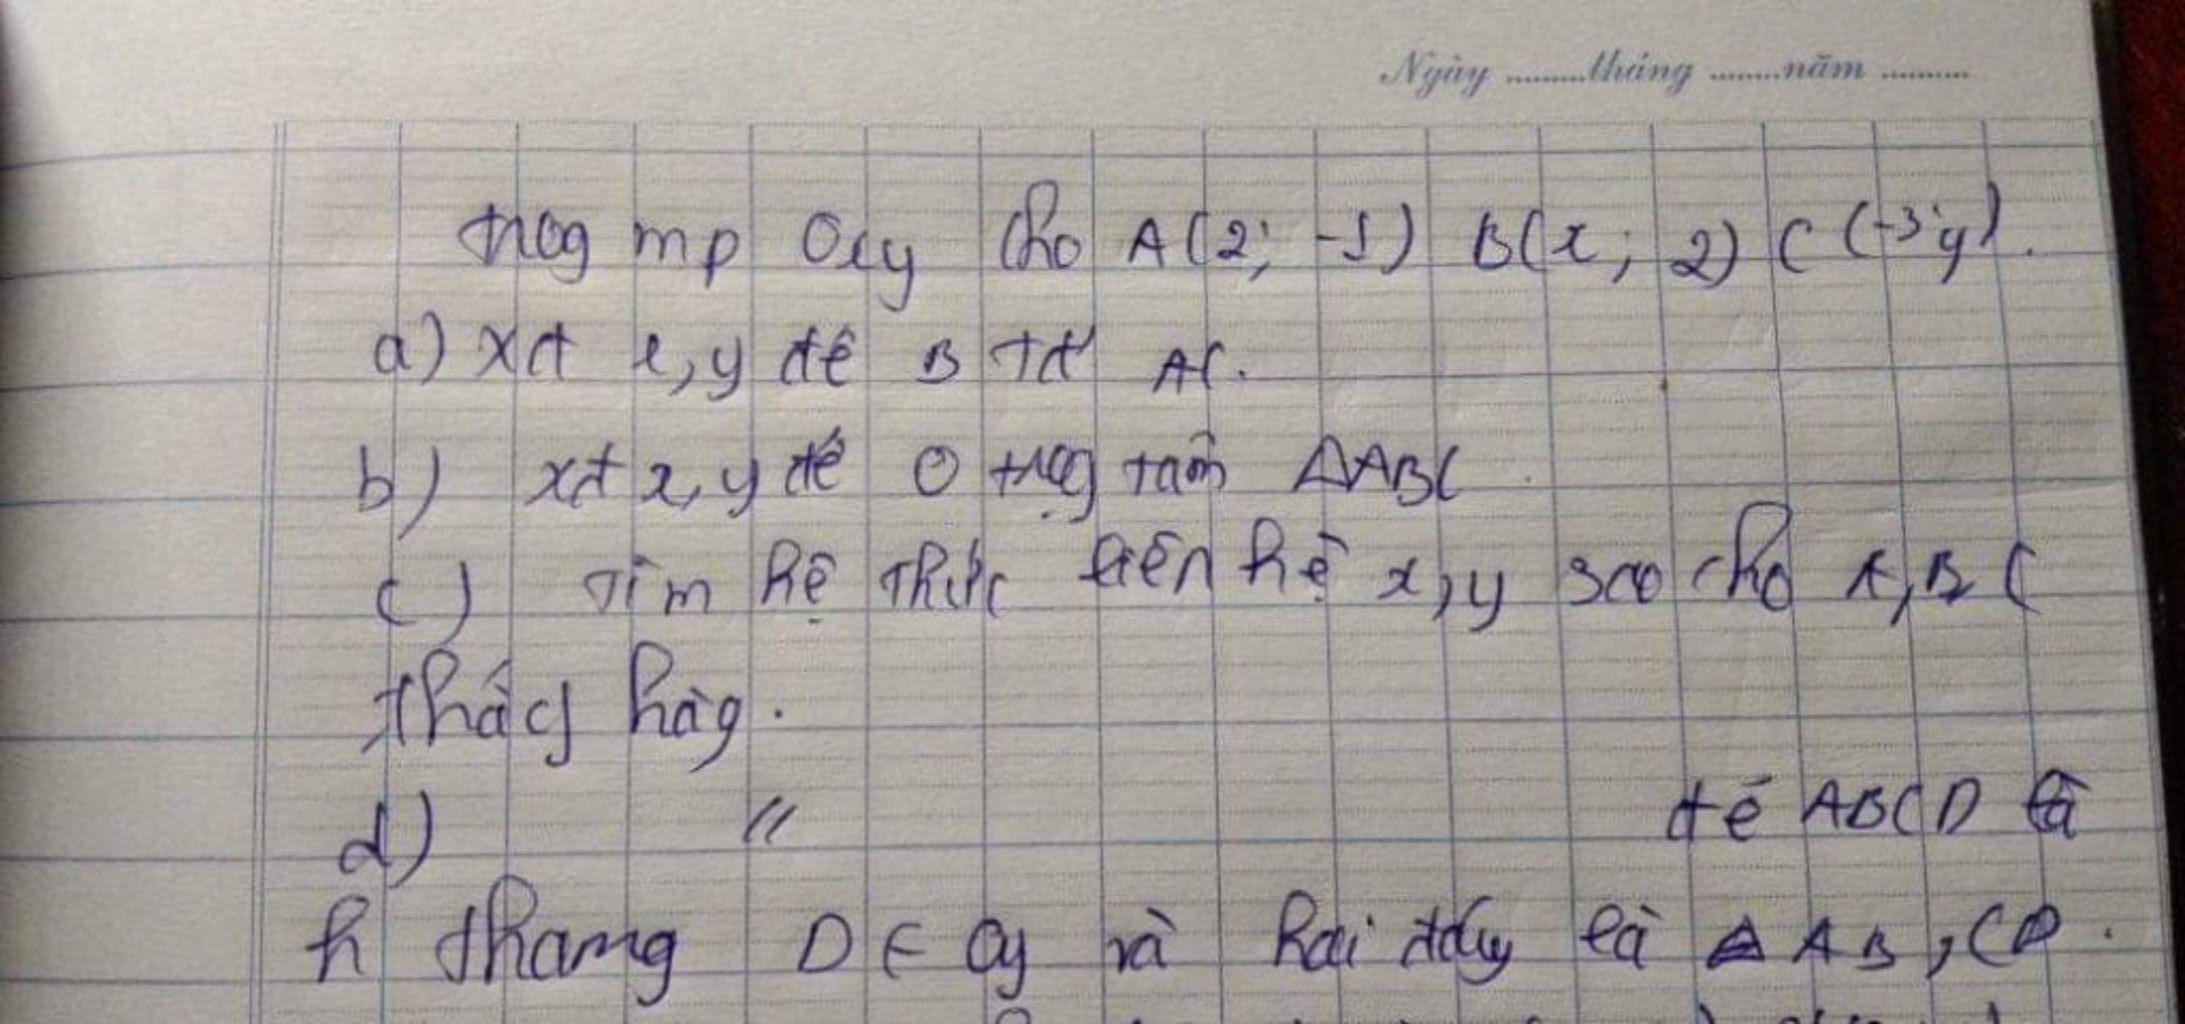 Ngày .........tháng ........năm ..........
trog mp Oxy cho A(2; -1) B(x; 2) C(-3; y).
a) xđ x, y để B tđ AC.
b) xđ x, y để O trọg tâm ΔABC.
c) Tìm hệ thức liên hệ x, y sao cho A, B C
thẳg hàg.
d) // để ABCD là
h thang D ∈ Oy và hai đáy là AB, CD.